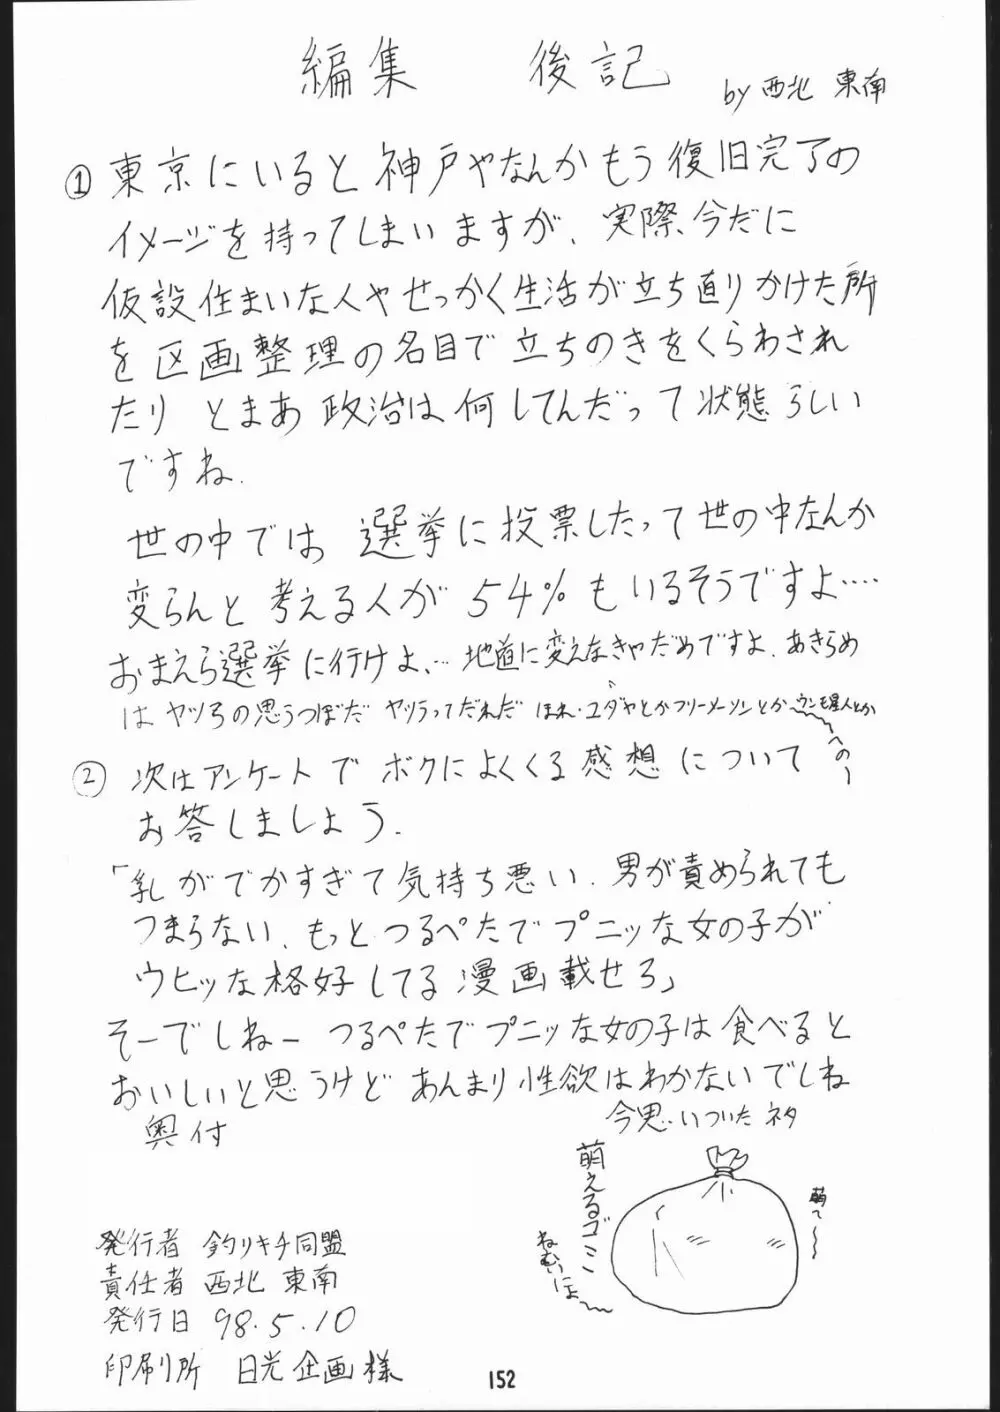 編集 後記
by 西北 東南
① 東京にいると神戸やなんかもう復旧完了の
イメージを持ってしまいますが、実際今だに
仮設住まいな人やせっかく生活が立ち直りかけた所
を区画整理の名目で立ちのきをくらわされ
たり とまあ 政治は何してんだって状態らしい
ですね.
世の中では 選挙に投票したって世の中なんか
変らんと考える人が54%もいるそうですよ……
おまえら選挙に行けよ、… 地道に変えなきゃだめですよ、あきらめ
はヤツらの思うつぼだ ヤツラってだれだ ほれ・ユダヤとかフリーメーソンとかウンモ星人とか
へのー
② 次はアンケートでボクによくくる感想について
お答しましょう.
「乳がでかすぎて気持ち悪い. 男が責められても
つまらない、もっとつるぺたでプニッな女の子が
ウヒッな格好してる漫画載せろ」
そーでしねー つるぺたでプニッな女の子は食べると
おいしいと思うけど あんまり性欲はわかないでしね
今思いついたネタ
奥付
萌えるゴミ
萌て〜
ねむいにょ〜
発行者 釣りキチ同盟
責任者 西北 東南
発行日 98.5.10
印刷所 日光企画様
152